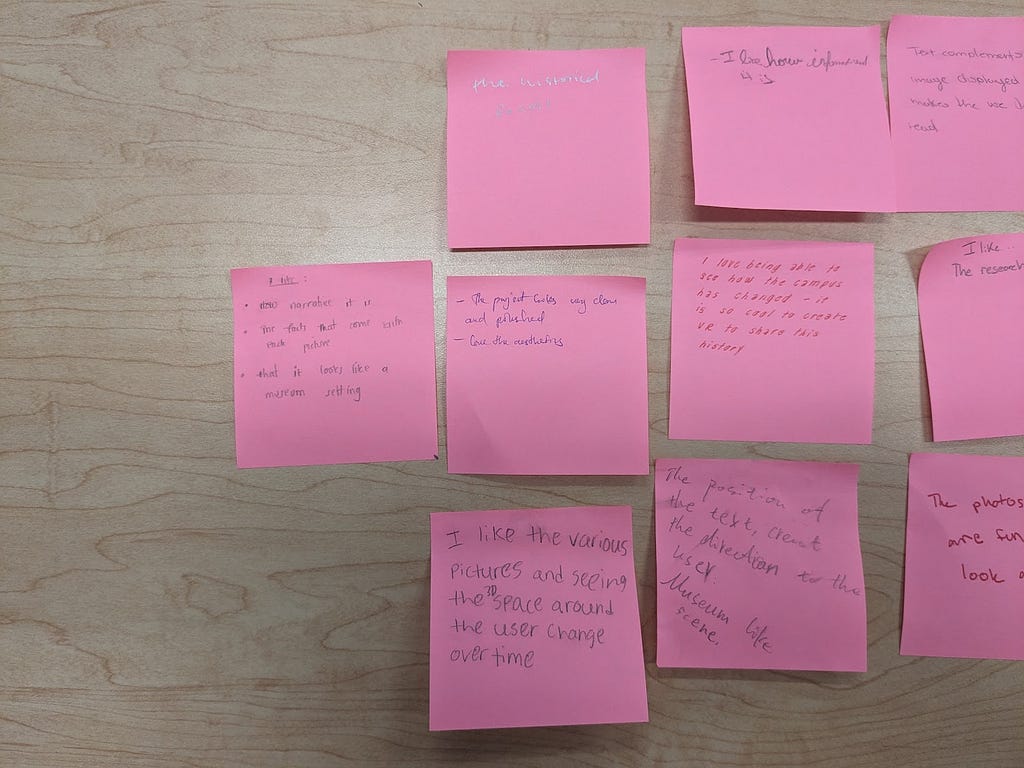 the historical
- I love how informational
it is
Text complements
image displayed
makes the use
read
I like :
• how narrative it is
• The facts that come with
each picture
• that it looks like a
museum setting
- The project looks very clean
and polished
- Love the aesthetics
I love being able to
see how the campus
has changed - it
is so cool to create
VR to share this
history
I like...
The research
I like the various
pictures and seeing
the 3D space around
the user change
over time
The position of
the text, creat
the direction to the
user.
Museum like
scene.
The photos
are fun
look